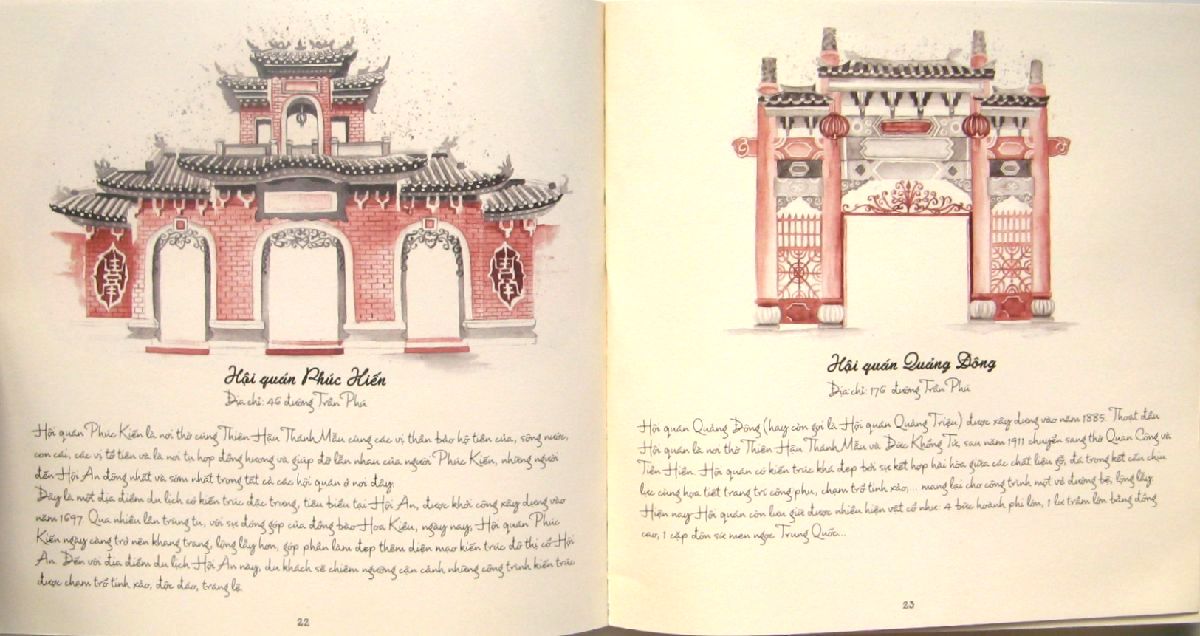 Hội quán Phúc Kiến
Địa chỉ: 46 đường Trần Phú
Hội quán Phúc Kiến là nơi thờ cúng Thiên Hậu Thánh Mẫu cùng các vị thần bảo hộ tiền của, sông nước,
con cái, các vị tổ tiên và là nơi tụ họp đồng hương và giúp đỡ lẫn nhau của người Phúc Kiến, những người
đến Hội An đông nhất và sớm nhất trong tất cả các hội quán ở nơi đây.
Đây là một địa điểm du lịch có kiến trúc đặc trưng, tiêu biểu tại Hội An, được khởi công xây dựng vào
năm 1697. Qua nhiều lần trùng tu, với sự đóng góp của đồng bào Hoa Kiều, ngày nay, Hội quán Phúc
Kiến ngày càng trở nên khang trang, lộng lẫy hơn, góp phần làm đẹp thêm diện mạo kiến trúc đô thị cổ Hội
An. Đến với địa điểm du lịch Hội An này, du khách sẽ chiêm ngưỡng cận cảnh những công trình kiến trúc
được chạm trổ tinh xảo, độc đáo, tráng lệ.
22
Hội quán Quảng Đông
Địa chỉ: 176 đường Trần Phú
Hội quán Quảng Đông (hay còn gọi là Hội quán Quảng Triệu) được xây dựng vào năm 1885. Thoạt đầu
Hội quán là nơi thờ Thiên Hậu Thánh Mẫu và Đức Khổng Tử, sau năm 1911 chuyển sang thờ Quan Công và
Tiền Hiền. Hội quán có kiến trúc khá đẹp bởi sự kết hợp hài hòa giữa các chất liệu gỗ, đá trong kết cấu chịu
lực cùng họa tiết trang trí công phu, chạm trổ tinh xảo,... mang lại cho công trình một vẻ đường bệ, lộng lẫy.
Hiện nay Hội quán còn lưu giữ được nhiều hiện vật cổ như: 4 bức hoành phi lớn, 1 lư trầm lớn bằng đồng
cao, 1 cặp đôn sứ men ngọc Trung Quốc...
23